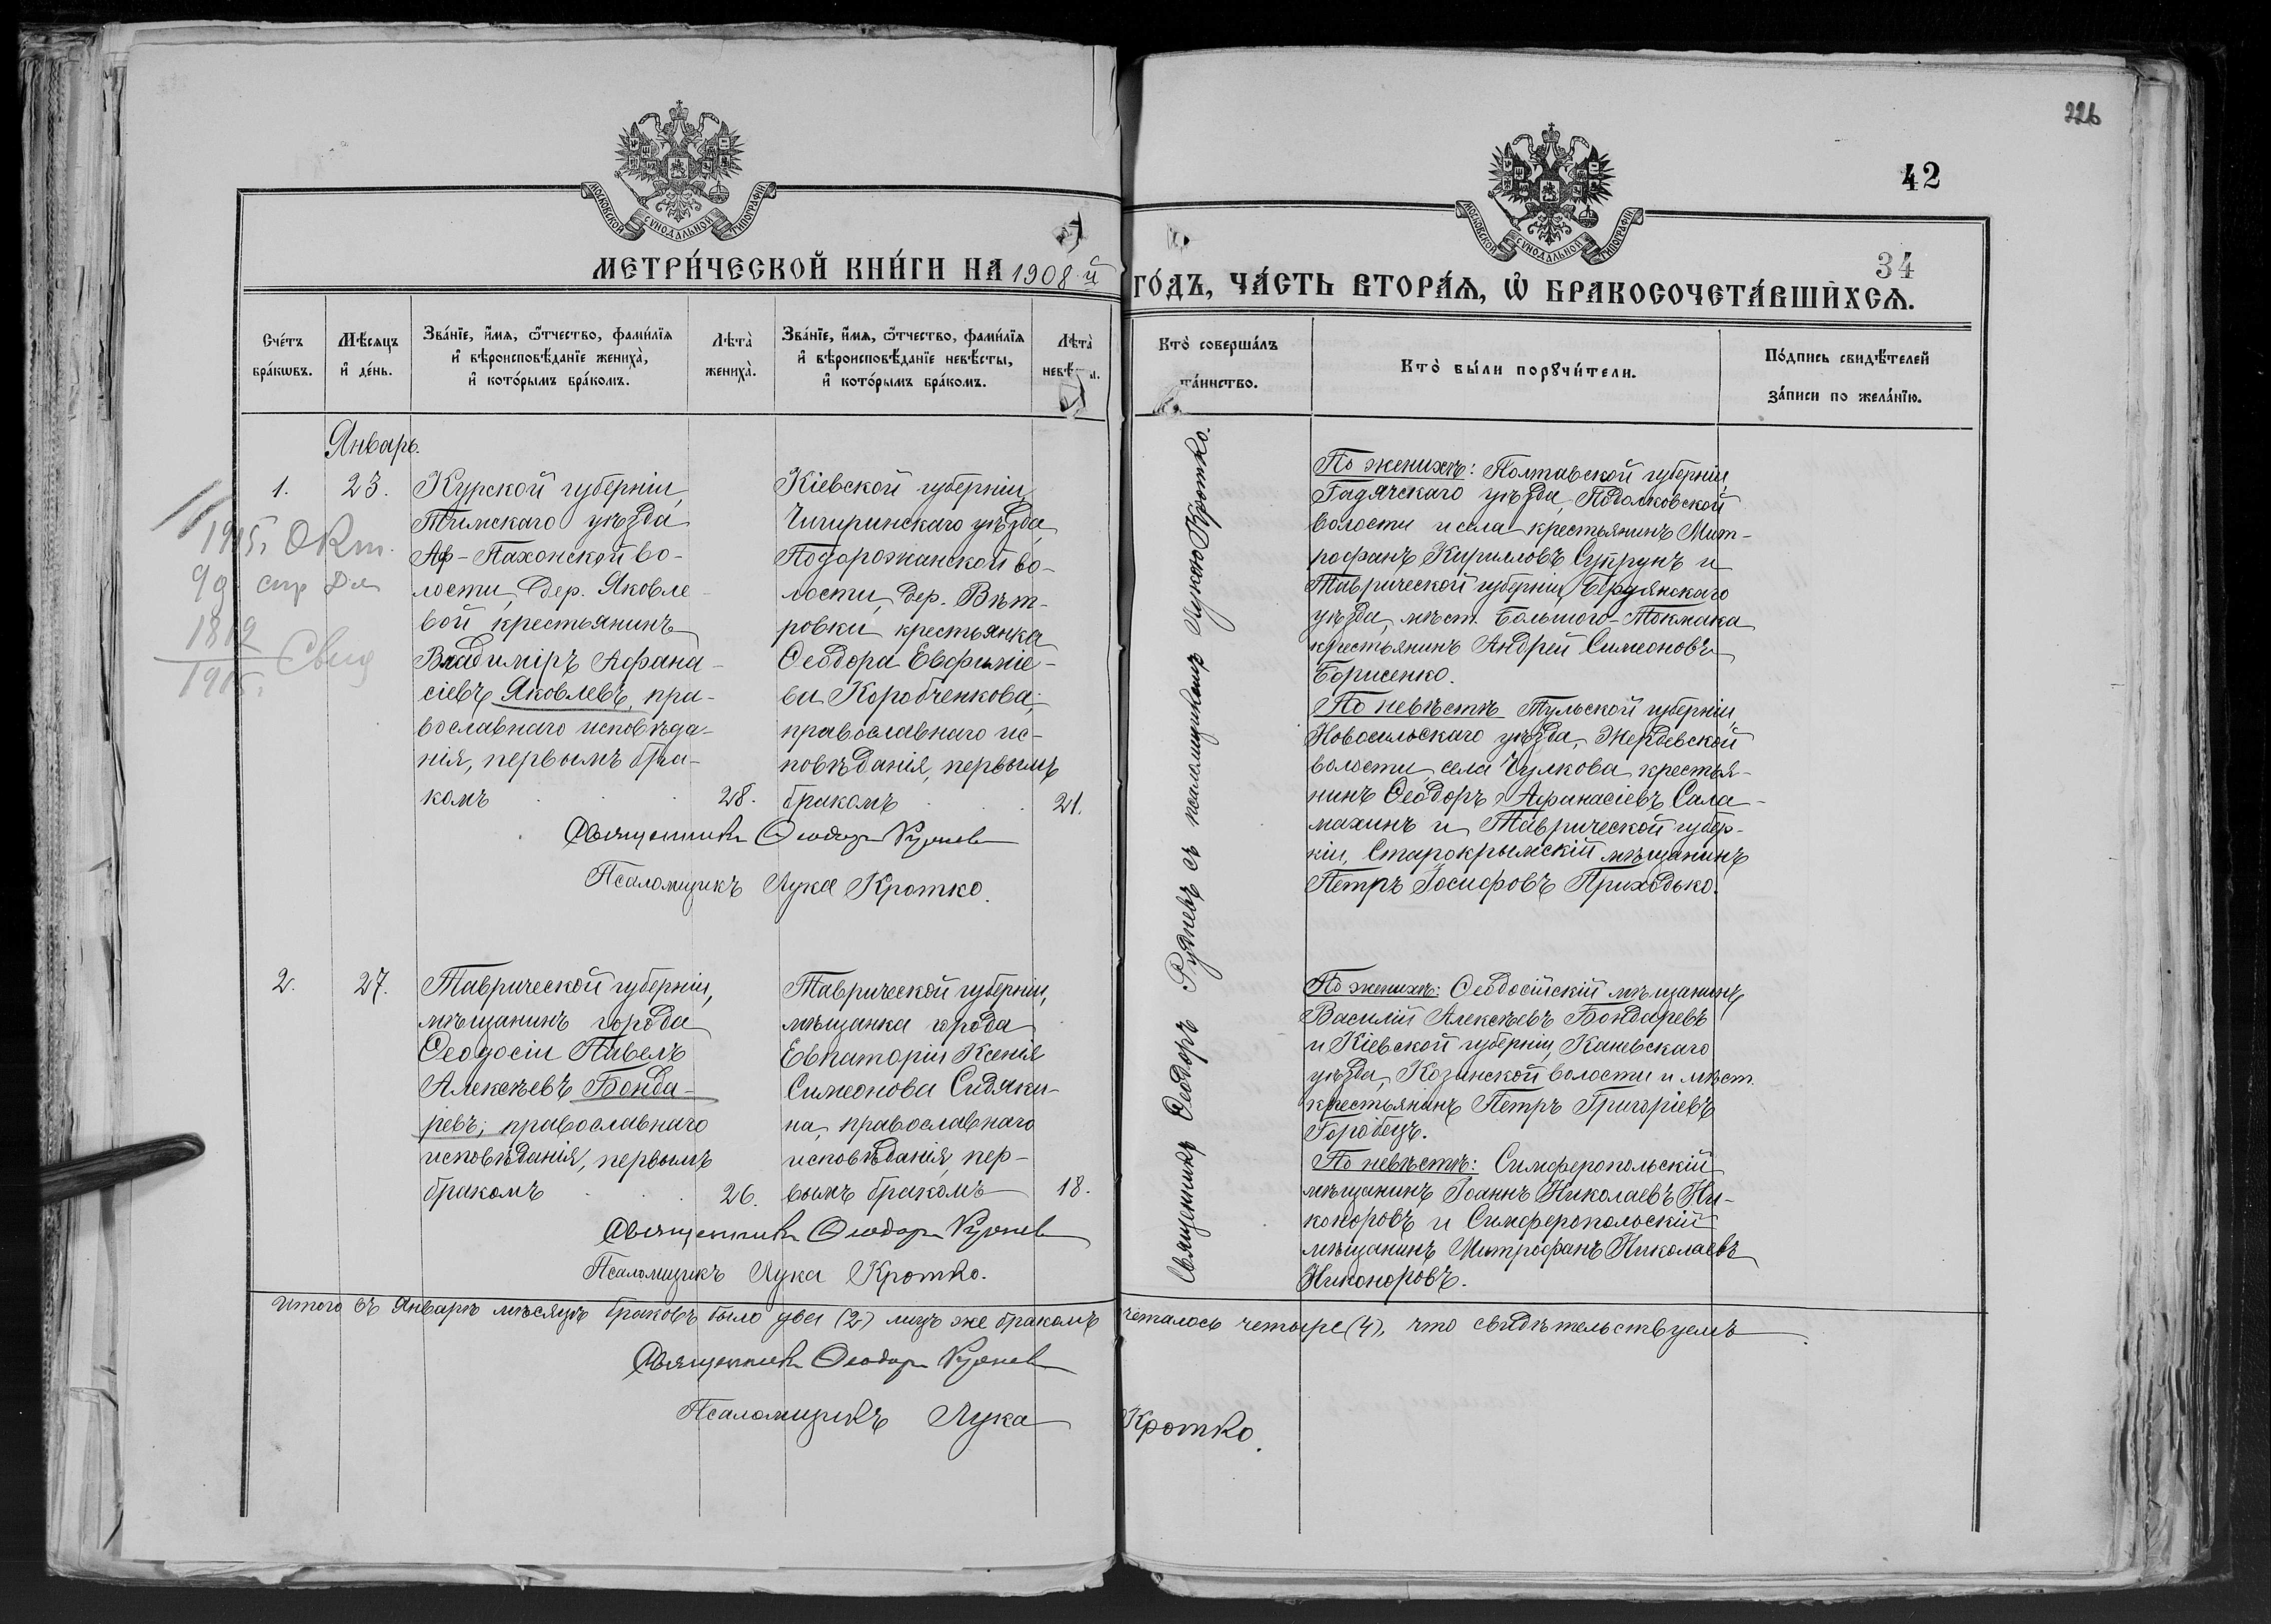 226
42
34
МОСКОВСКОЙ СѴНОДАЛЬНОЙ ТИПОГРАФІИ
МОСКОВСКОЙ СѴНОДАЛЬНОЙ ТИПОГРАФІИ
МЕТРИ́ЧЕСКОЙ КНИ́ГИ НА 1908-й
ГО́ДЪ, ЧА́СТЬ ВТОРА́Ѧ, Ѽ БРАКОСОЧЕТА́ВШИХСѦ.
Сче́тъ бра́кѡвъ.
Мѣ́сяцъ и҆ де́нь.
Зва́нїе, и҆́мѧ, ѻ҆́тчество, фами́лїѧ и҆ вѣроисповѣ́данїе жениха̀, и҆ кото́рымъ бра́комъ.
Лѣта̀ жениха̀.
Зва́нїе, и҆́мѧ, ѻ҆́тчество, фами́лїѧ и҆ вѣроисповѣ́данїе невѣ́сты, и҆ кото́рымъ бра́комъ.
Лѣта̀ невѣ́сты.
Кто̀ соверша́лъ та́инство.
Кто̀ бы́ли порꙋчи́тели.
По́дпись свидѣ́телей за́писи по жела́нїю.
Январь.
1.
23.
Курской губерніи,
Тимскаго уѣзда
Аф-Пахонской во-
лости, дер. Яковле-
вой крестьянинъ
Владиміръ Афана-
сіевъ Яковлевъ, пра-
вославнаго исповѣда-
нія, первымъ бра-
комъ
28.
Кіевской губерніи,
Чигиринскаго уѣзда,
Подорожанской во-
лости, дер. Вѣт-
ровки крестьянка
Ѳеодора Евфиміе-
ва Коробченкова,
православнаго ис-
повѣданія, первымъ
бракомъ
21.
1915. Окт.
99 спр
1812
1915.
Свид
Священникъ Ѳеодоръ Рудневъ
Псаломщикъ Лука Кротко.
Священникъ Ѳеодоръ Рудневъ съ псаломщикомъ Лукою Кротко.
По женихѣ: Полтавской губерніи,
Гадячскаго уѣзда, Подолковской
волости и села крестьянинъ Мит-
рофанъ Кирилловъ Супрунъ и
Таврической губерніи, Бердянскаго
уѣзда, мѣст. Большого-Токмака
крестьянинъ Андрей Симеоновъ
Борисенко.
По невѣстѣ Тульской губерніи,
Новосильскаго уѣзда, Жердевской
волости, села Чулкова крестья-
нинъ Ѳеодоръ Афанасіевъ Сала-
махинъ и Таврической губер-
ніи, Старокрымскій мѣщанинъ
Петръ Іосифовъ Приходько.
2.
27.
Таврической губерніи,
мѣщанинъ города
Ѳеодосіи Павелъ
Алексѣевъ Бонда-
ревъ, православнаго
исповѣданія, первымъ
бракомъ
26.
Таврической губерніи,
мѣщанка города
Евпаторіи Ксенія
Симеонова Сидяки-
на, православнаго
исповѣданія, пер-
вымъ бракомъ
18.
Священникъ Ѳеодоръ Рудневъ
Псаломщикъ Лука Кротко.
По женихѣ: Ѳеодосійскій мѣщанинъ
Василій Алексѣевъ Бондаревъ
и Кіевской губерніи, Каневскаго
уѣзда, Козинской волости и мѣст.
крестьянинъ Петръ Григоріевъ
Горобецъ.
По невѣстѣ: Симферопольскій
мѣщанинъ Іоаннъ Николаевъ Ни-
коноровъ и Симферопольскій
мѣщанинъ Митрофанъ Николаевъ
Никоноровъ.
Итого въ Январѣ мѣсяцѣ браковъ было два (2) лицъ же бракомъ
четалось четыре (4), что свидѣтельствуемъ
Священникъ Ѳеодоръ Рудневъ
Псаломщикъ Лука Кротко.